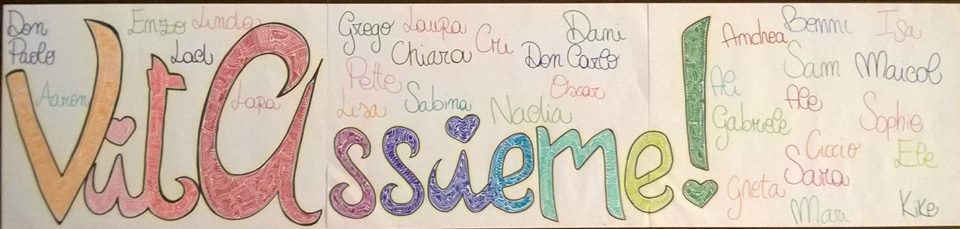 Don Paolo
Enzo
Linda
Ladi
Aaron
Lapa
VitA assieme!
Grego
Laura
Cri
Dani
Chiara
Don Carlo
Pette
Oscar
Lisa
Sabina
Nadia
Andrea
Bonni
Isa
Sam
Maicol
Ali
Ale
Gabriele
Sophie
Ciccio
Ele
Sara
Greta
Mari
Kike